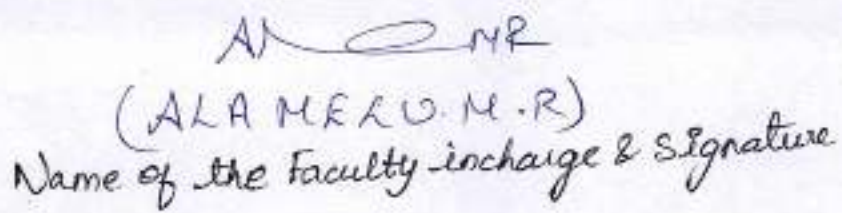 (ALAMELU.M.R)
Name of the Faculty incharge & Signature